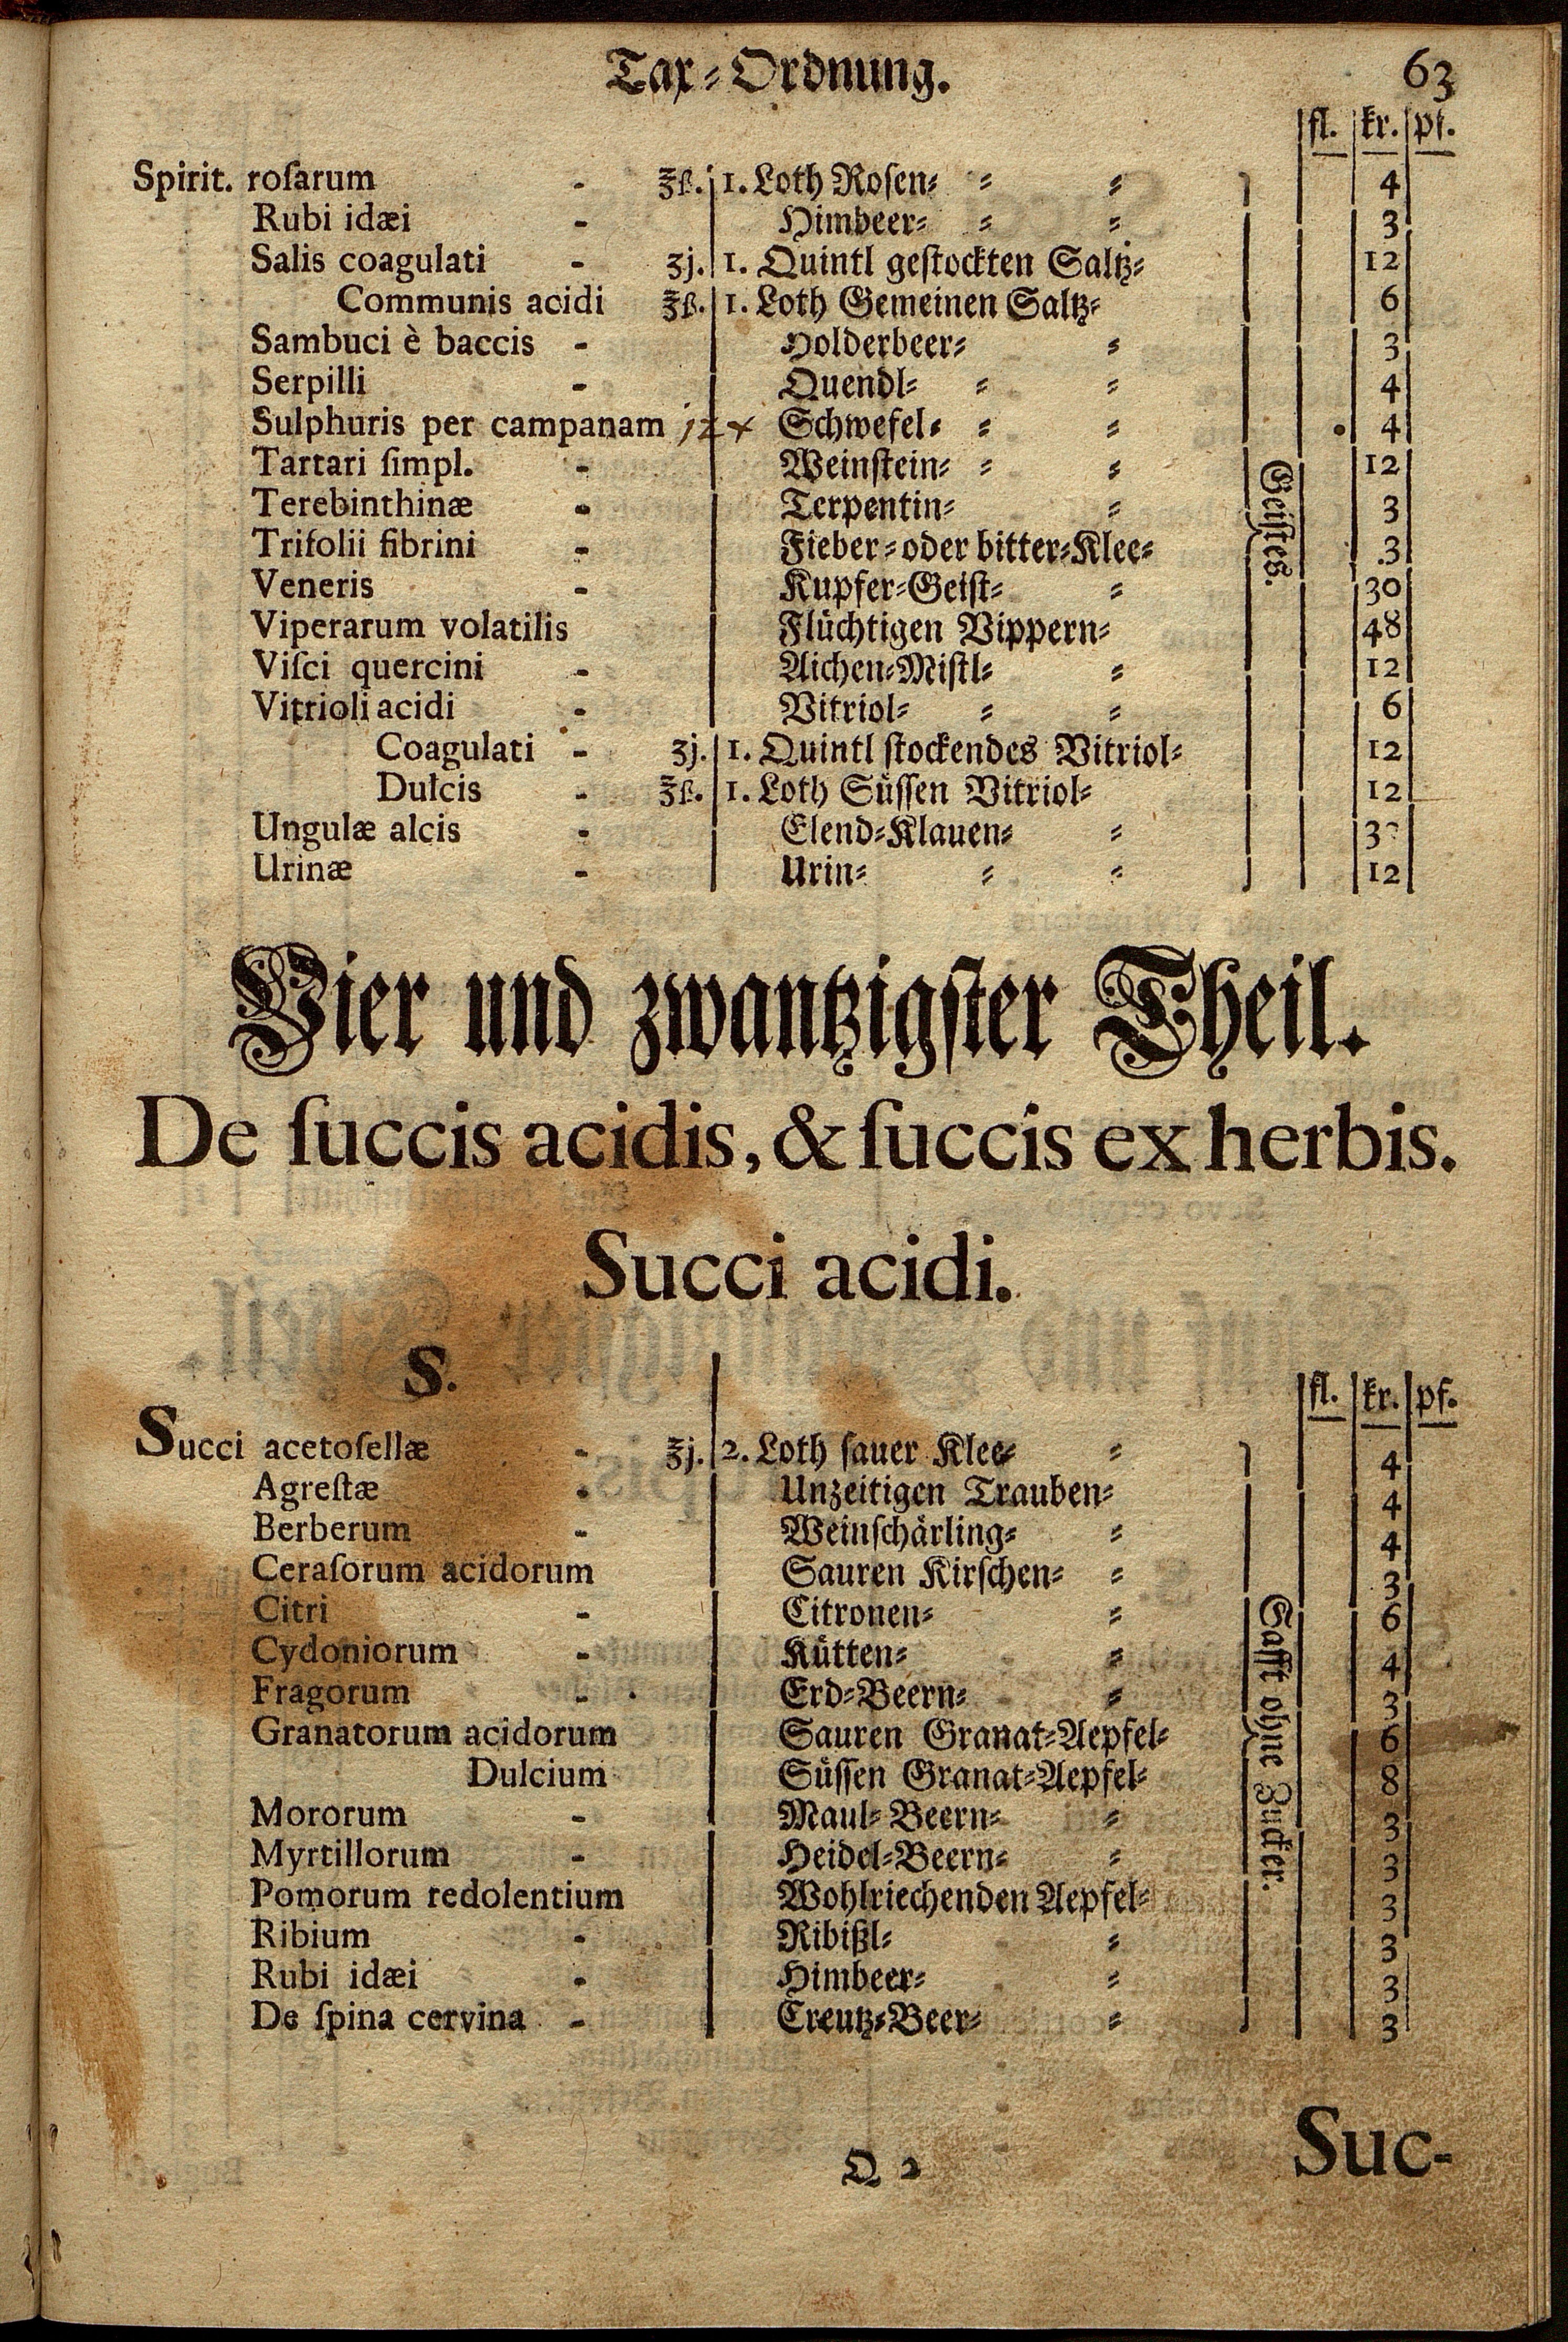 Tax-Ordnung. 63
fl. kr. pf.
Spirit. roſarum - ℥ß. 1. Loth Roſen- - - 4
Rubi idæi - Himbeer- - - 3
Salis coagulati - ʒj. 1. Quintl geſtockten Saltz- 12
Communis acidi ℥ß. 1. Loth Gemeinen Saltz- 6
Sambuci è baccis - Holderbeer- - 3
Serpilli - Quendl- - - 4
Sulphuris per campanam 12 x Schwefel- - - 4
Tartari ſimpl. - Weinſtein- - - 12
Terebinthinæ - Terpentin- - 3
Trifolii fibrini - Fieber- oder bitter-Klee- 3
Veneris - Kupfer-Geiſt- - 30
Viperarum volatilis Flüchtigen Vippern- 48
Viſci quercini - Aichen-Miſtl- - 12
Vitrioli acidi - Vitriol- - - 6
Coagulati - ʒj. 1. Quintl ſtockendes Vitriol- 12
Dulcis - ℥ß. 1. Loth Süſſen Vitriol- 12
Ungulæ alcis - Elend-Klauen- -
Urinæ - Urin- - - 12
Geiſtes.
Vier und zwantzigſter Theil.
De ſuccis acidis, & ſuccis ex herbis.
Succi acidi.
S.
fl. kr. pf.
Succi acetoſellæ - ℥j. 2. Loth ſauer Klee- - 4
Agreſtæ - Unzeitigen Trauben- 4
Berberum - Weinſchärling- - 4
Ceraſorum acidorum Sauren Kirſchen- - 3
Citri - Citronen- - 6
Cydoniorum - Kütten- - 4
Fragorum - Erd-Beern- - 3
Granatorum acidorum Sauren Granat-Aepfel- 6
Dulcium Süſſen Granat-Aepfel- 8
Mororum - Maul-Beern- - 3
Myrtillorum - Heidel-Beern- - 3
Pomorum redolentium Wohlriechenden Aepfel- 3
Ribium - Ribißl- - 3
Rubi idæi - Himbeer- - 3
De ſpina cervina - Creutz-Beer- - 3
Safft ohne Zucker.
Q 2 Suc-